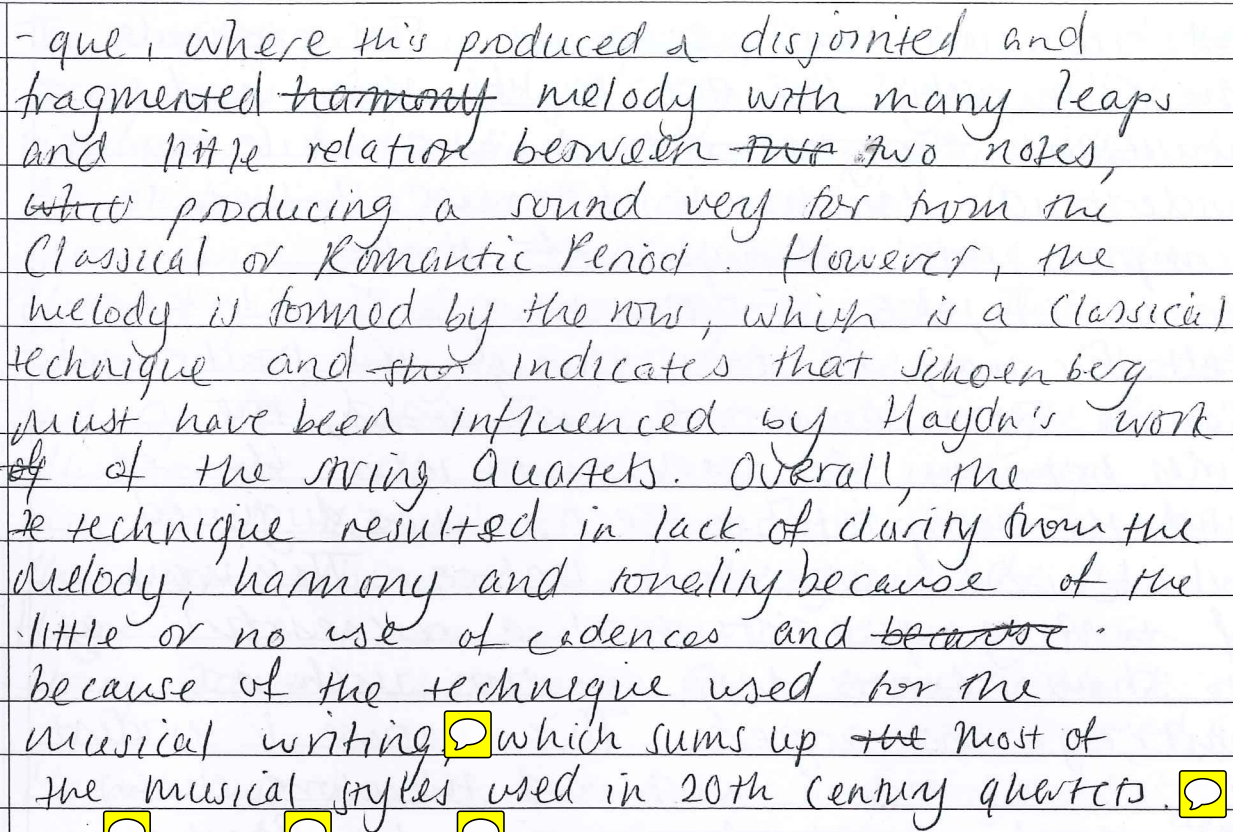 -que, where this produced a disjointed and
fragmented ~~harmony~~ melody with many leaps
and little relation between ~~two~~ two notes,
~~which~~ producing a sound very far from the
Classical or Romantic Period. However, the
melody is formed by the row, which is a Classical
technique and ~~that~~ indicates that Schoenberg
must have been influenced by Haydn's work
~~of~~ of the string Quartets. Overall, the
~~te~~ technique resulted in lack of clarity from the
melody, harmony and tonality because of the
little or no use of cadences and ~~because~~
because of the technique used for the
musical writing, which sums up ~~the~~ most of
the musical styles used in 20th Century quartets.